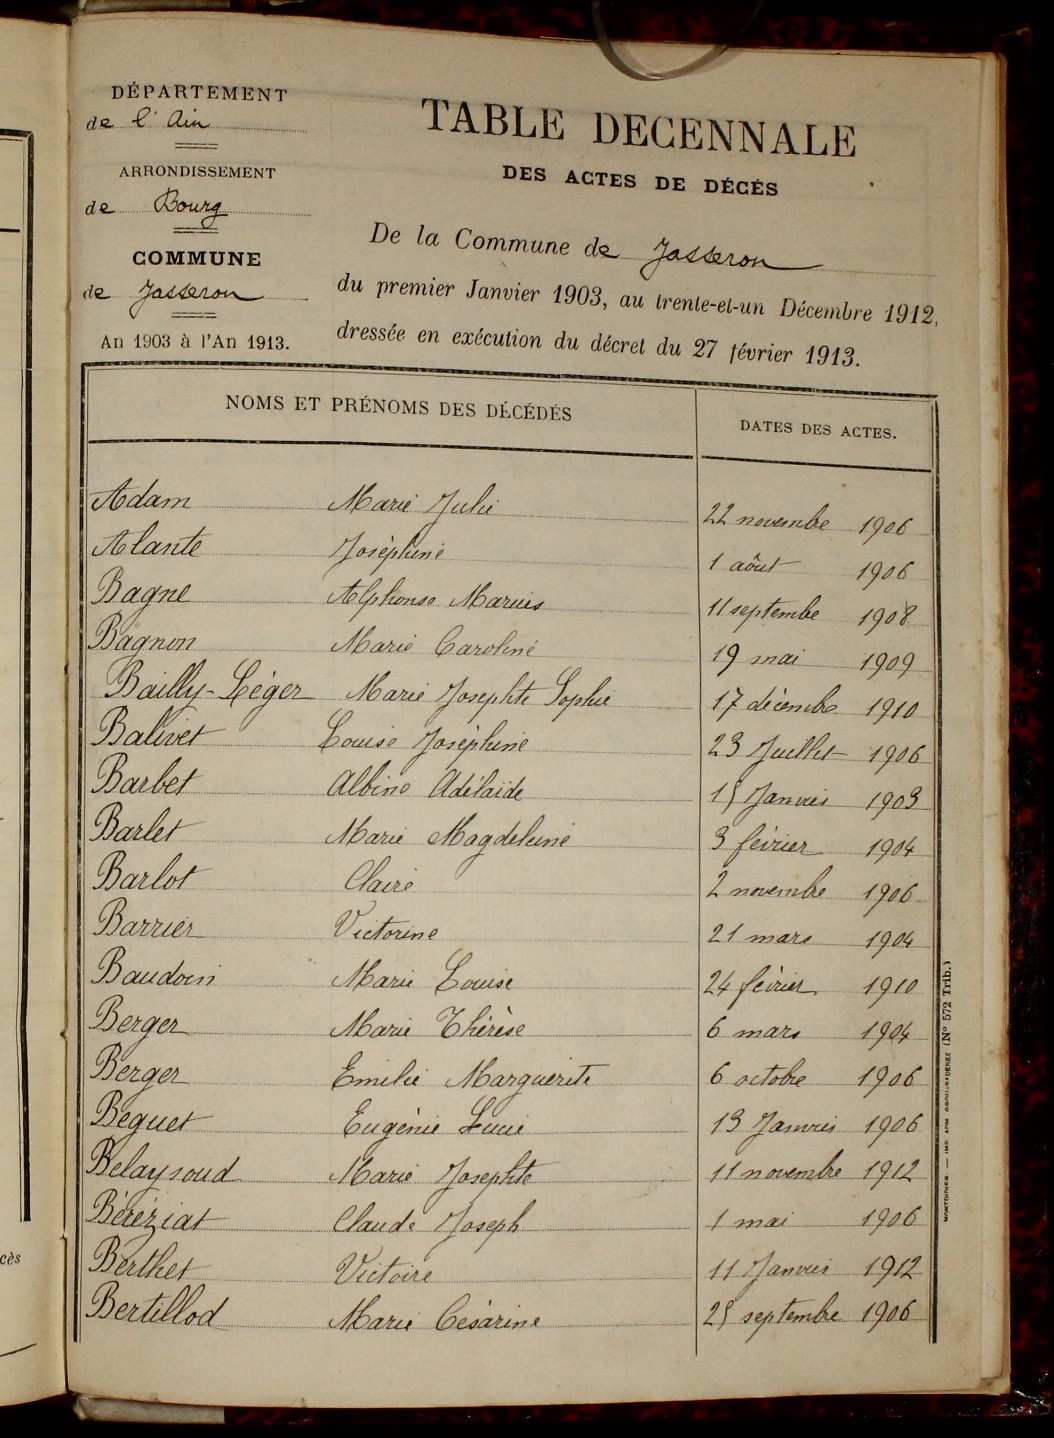 DÉPARTEMENT
de l'Ain
ARRONDISSEMENT
de Bourg
COMMUNE
de Jasseron
An 1903 à l'An 1913.
TABLE DECENNALE
DES ACTES DE DÉCÉS
De la Commune de Jasseron
du premier Janvier 1903, au trente-et-un Décembre 1912,
dressée en exécution du décret du 27 février 1913.
NOMS ET PRÉNOMS DES DÉCÉDÉS DATES DES ACTES.
Adam Marie Julie 22 novembre 1906
Alante Joséphine 1 aôut 1906
Bagne Alphonse Marius 11 septembe 1908
Bagnon Marie Caroline 19 mai 1909
Bailly-Léger Marie Josephte Sophie 17 décembe 1910
Balivet Louise Joséphine 23 Juillet 1906
Barbet Albine Adélaïde 15 Janvier 1903
Barlet Marie Magdeleine 3 février 1904
Barlot Claire 2 novembre 1906
Barrier Victorine 21 mars 1904
Baudoin Marie Louise 24 février 1910
Berger Marie Thérèse 6 mars 1904
Berger Emilie Marguerite 6 octobre 1906
Beguet Eugénie Lucie 13 Janvier 1906
Belaysoud Marie Josephte 11 novembre 1912
Béréziat Claude Joseph 1 mai 1906
Berthet Victoire 11 Janvier 1912
Bertillod Marie Césarine 25 septembre 1906
(N° 572 Trib.)
cès